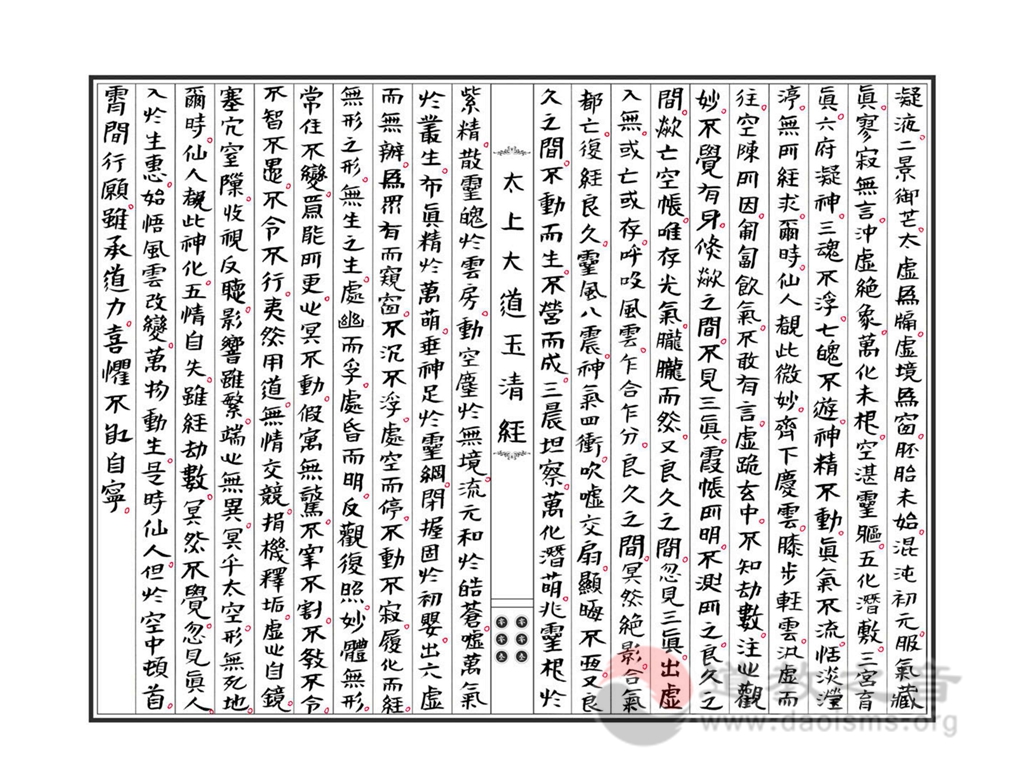 凝液。二景御芒。太虛爲牖。虛境爲窗。胚胎未始。混沌初元。服氣藏
眞。寥寂無言。沖虛絕象。萬化未根。空湛靈軀。五化潛敷。三宮育
眞。六府凝神。三魂不浮。七魄不遊。神精不動。眞氣不流。恬淡瀅
渟。無所經求。爾時。仙人覩此微妙。齊下慶雲。膝步輕雲。汎虛而
往。空陳所因。匍匐飲氣。不敢有言。虛跪玄中。不知劫數。注心觀
妙。不覺有身。倏歘之間。不見三眞。霞帳所明。不測所之。良久之
間。歘亡空帳。唯存光氣。朧朧而然。又良久之間。忽見三眞。出虛
入無。或亡或存。呼吸風雲。乍合乍分。良久之間。冥然絕影。合氣
都亡。復經良久。靈風八震。神氣四衝。吹噓交扇。顯晦不亟。又良
久之間。不動而生。不營而成。三晨坦察。萬化潛萌。兆靈根於
太上大道玉清經
紫精。散靈魄於雲房。動空塵於無境。流元和於皓蒼。噓萬氣
於叢生。布眞精於萬萌。垂神足於靈綱。閉握固於初嬰。出六虛
而無辨。爲眾有而窺窗。不沉不浮。處空而停。不動不寂。履化而經
無形之形。無生之生。處幽而孚。處昏而明。反觀復照。妙體無形。
常住不變。詈能所更。心冥不動。假寓無驚。不宰不割。不教不令。
不智不愚。不令不行。夷然用道。無情交競。捐機釋垢。虛心自鏡。
塞宂窒隟。收視反聽。影響雖繫。端心無異。冥乎太空。形無死地。
爾時。仙人覩此神化。五情自失。雖經劫數。冥然不覺。忽見眞人。
入於生惠。始悟風雲改變。萬物動生。是時仙人。但於空中頓首。
霄間行願。雖承道力。喜懼不自寧。
道教之音
www.daoisms.org